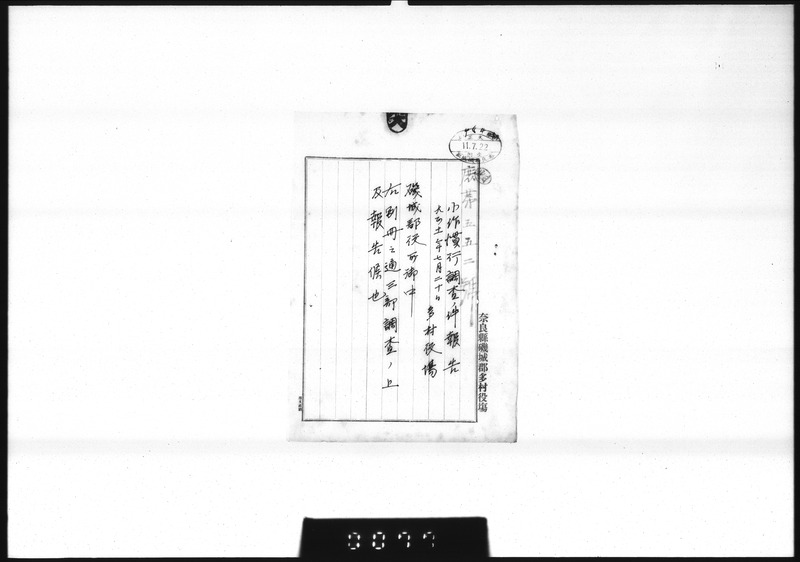 11.7.22
第三五二號
小作慣行調査ノ件報告
大正十一年七月二十日
多村役場
磯城郡役所御中
右別冊之通三部調査ノ上
及報告候也
奈良縣磯城郡多村役場
0077